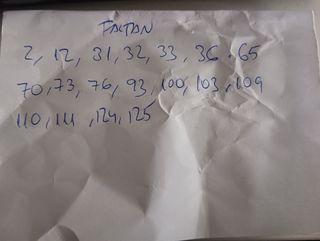 FALTAN
2, 12, 31, 32, 33, 36, 65
70, 73, 76, 93, 100, 103, 109
110, 111, 124, 125